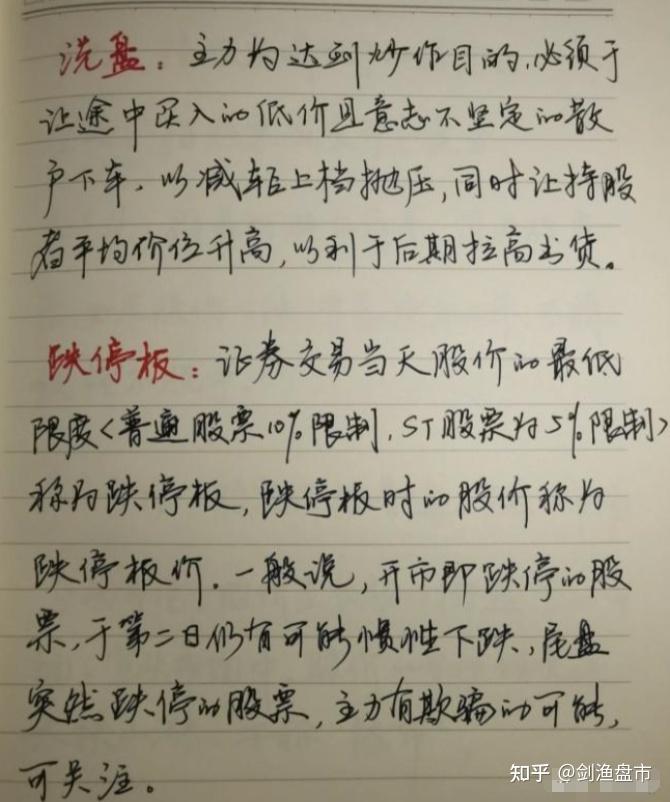 洗盘：主力为达到炒作目的，必须于
让途中买入的低价且意志不坚定的散
户下车，以减轻上档抛压，同时让持股
者平均价位升高，以利于后期拉高出货。
跌停板：证券交易当天股价的最低
限度<普通股票10%限制，ST股票为5%限制>
称为跌停板，跌停板时的股价称为
跌停板价．一般说，开市即跌停的股
票，于第二日仍有可能惯性下跌，尾盘
突然跌停的股票，主力有欺骗的可能，
可关注。
知乎 @剑渔盘市